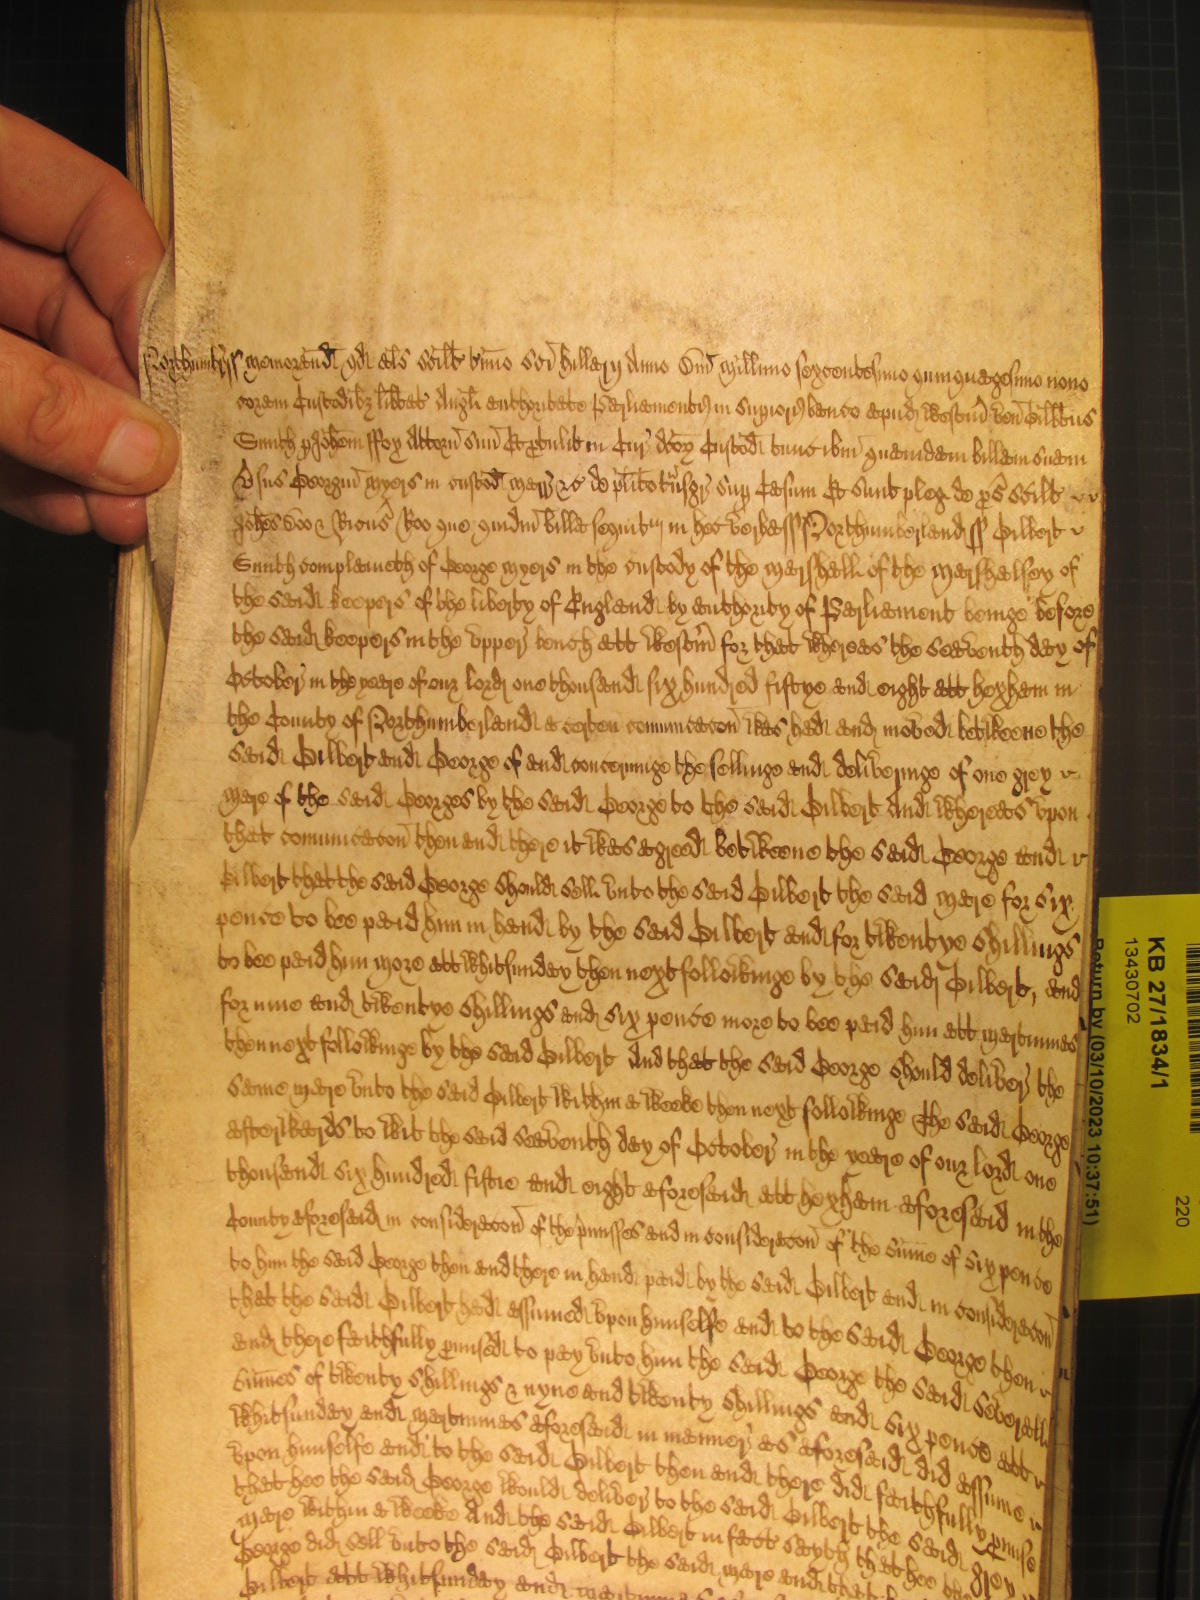 Northumbr ss Memorand qd als scilt Termo Sci Hillarij Anno Dni Millimo sexcentesimo quinquagesimo nono
coram Custodibz libtat Angli authoritate Parliamenti in supiori banco apud Westm ven Gilbtus
Smith p Johem Ffoy Attorn suu Et ptulit in Cur dcoz Custod tunc ibm quandam billam suam
Vsus Georgiu Myers in custod Marr &c de plito tnsgr sup Casum Et sunt pleg de ps scilt
Johes Doo & Ricus Roo que quidm billa sequitur in hec verba ss Northumberland ss Gilbert
Smith complaineth of George Myers in the custody of the Marshall of the Marshalsey of
the said keepers of the liberty of England by authority of Parliament beinge before
the said keepers in the vpper bench att Westm for that whereas the seaventh day of
October in the yeare of our lord one thousand six hundred fiftye and eight att hexham in
the County of Northumberland a certen comunicacon was had and moved betweene the
said Gilbert and George of and concerninge the sellinge and deliveringe of one grey
mare of the said Georges by the said George to the said Gilbert And whereas vpon
that comunicacon then and there it was agreed betweene the said George and
Gilbert that the said George should sell vnto the said Gilbert the said mare for six
pence to bee paid him in hand by the said Gilbert and for twentye shillings
to bee paid him more att Whitsunday then next followinge by the said Gilbert, and
for nine and twentye shillings and six pence more to bee paid him att Martinmas
then next followinge by the said Gilbert And that the said George should deliver the
same mare vnto the said Gilbert within a weeke then next followinge The said George
afterwards to wit the said seaventh day of October in the yeare of our lord one
thousand six hundred fiftie and eight aforesaid att hexham aforesaid in the
County aforesaid in consideracon of the pmisses and in consideracon of the sume of six pence
to him the said George then and there in hand paid by the said Gilbert and in consideracon
that the said Gilbert had assumed vpon himselfe and to the said George then
and there faithfully pmised to pay vnto him the said George the said severall
sumes of twenty shillings & nyne and twenty shillings and six pence att
Whitsunday and Martinmas aforesaid in manner as aforesaid did assume
vpon himselfe and to the said Gilbert then and there did faithfully pmise
that hee the said George would deliver to the said Gilbert the said grey
mare within a weeke And the said Gilbert in fact sayth that hee the
George did sell vnto the said Gilbert the said mare and that
Gilbert att Whitsunday and Martinmas
KB 27/1834/1
13430702
220
Return by (03/10/2023 10:37:51)